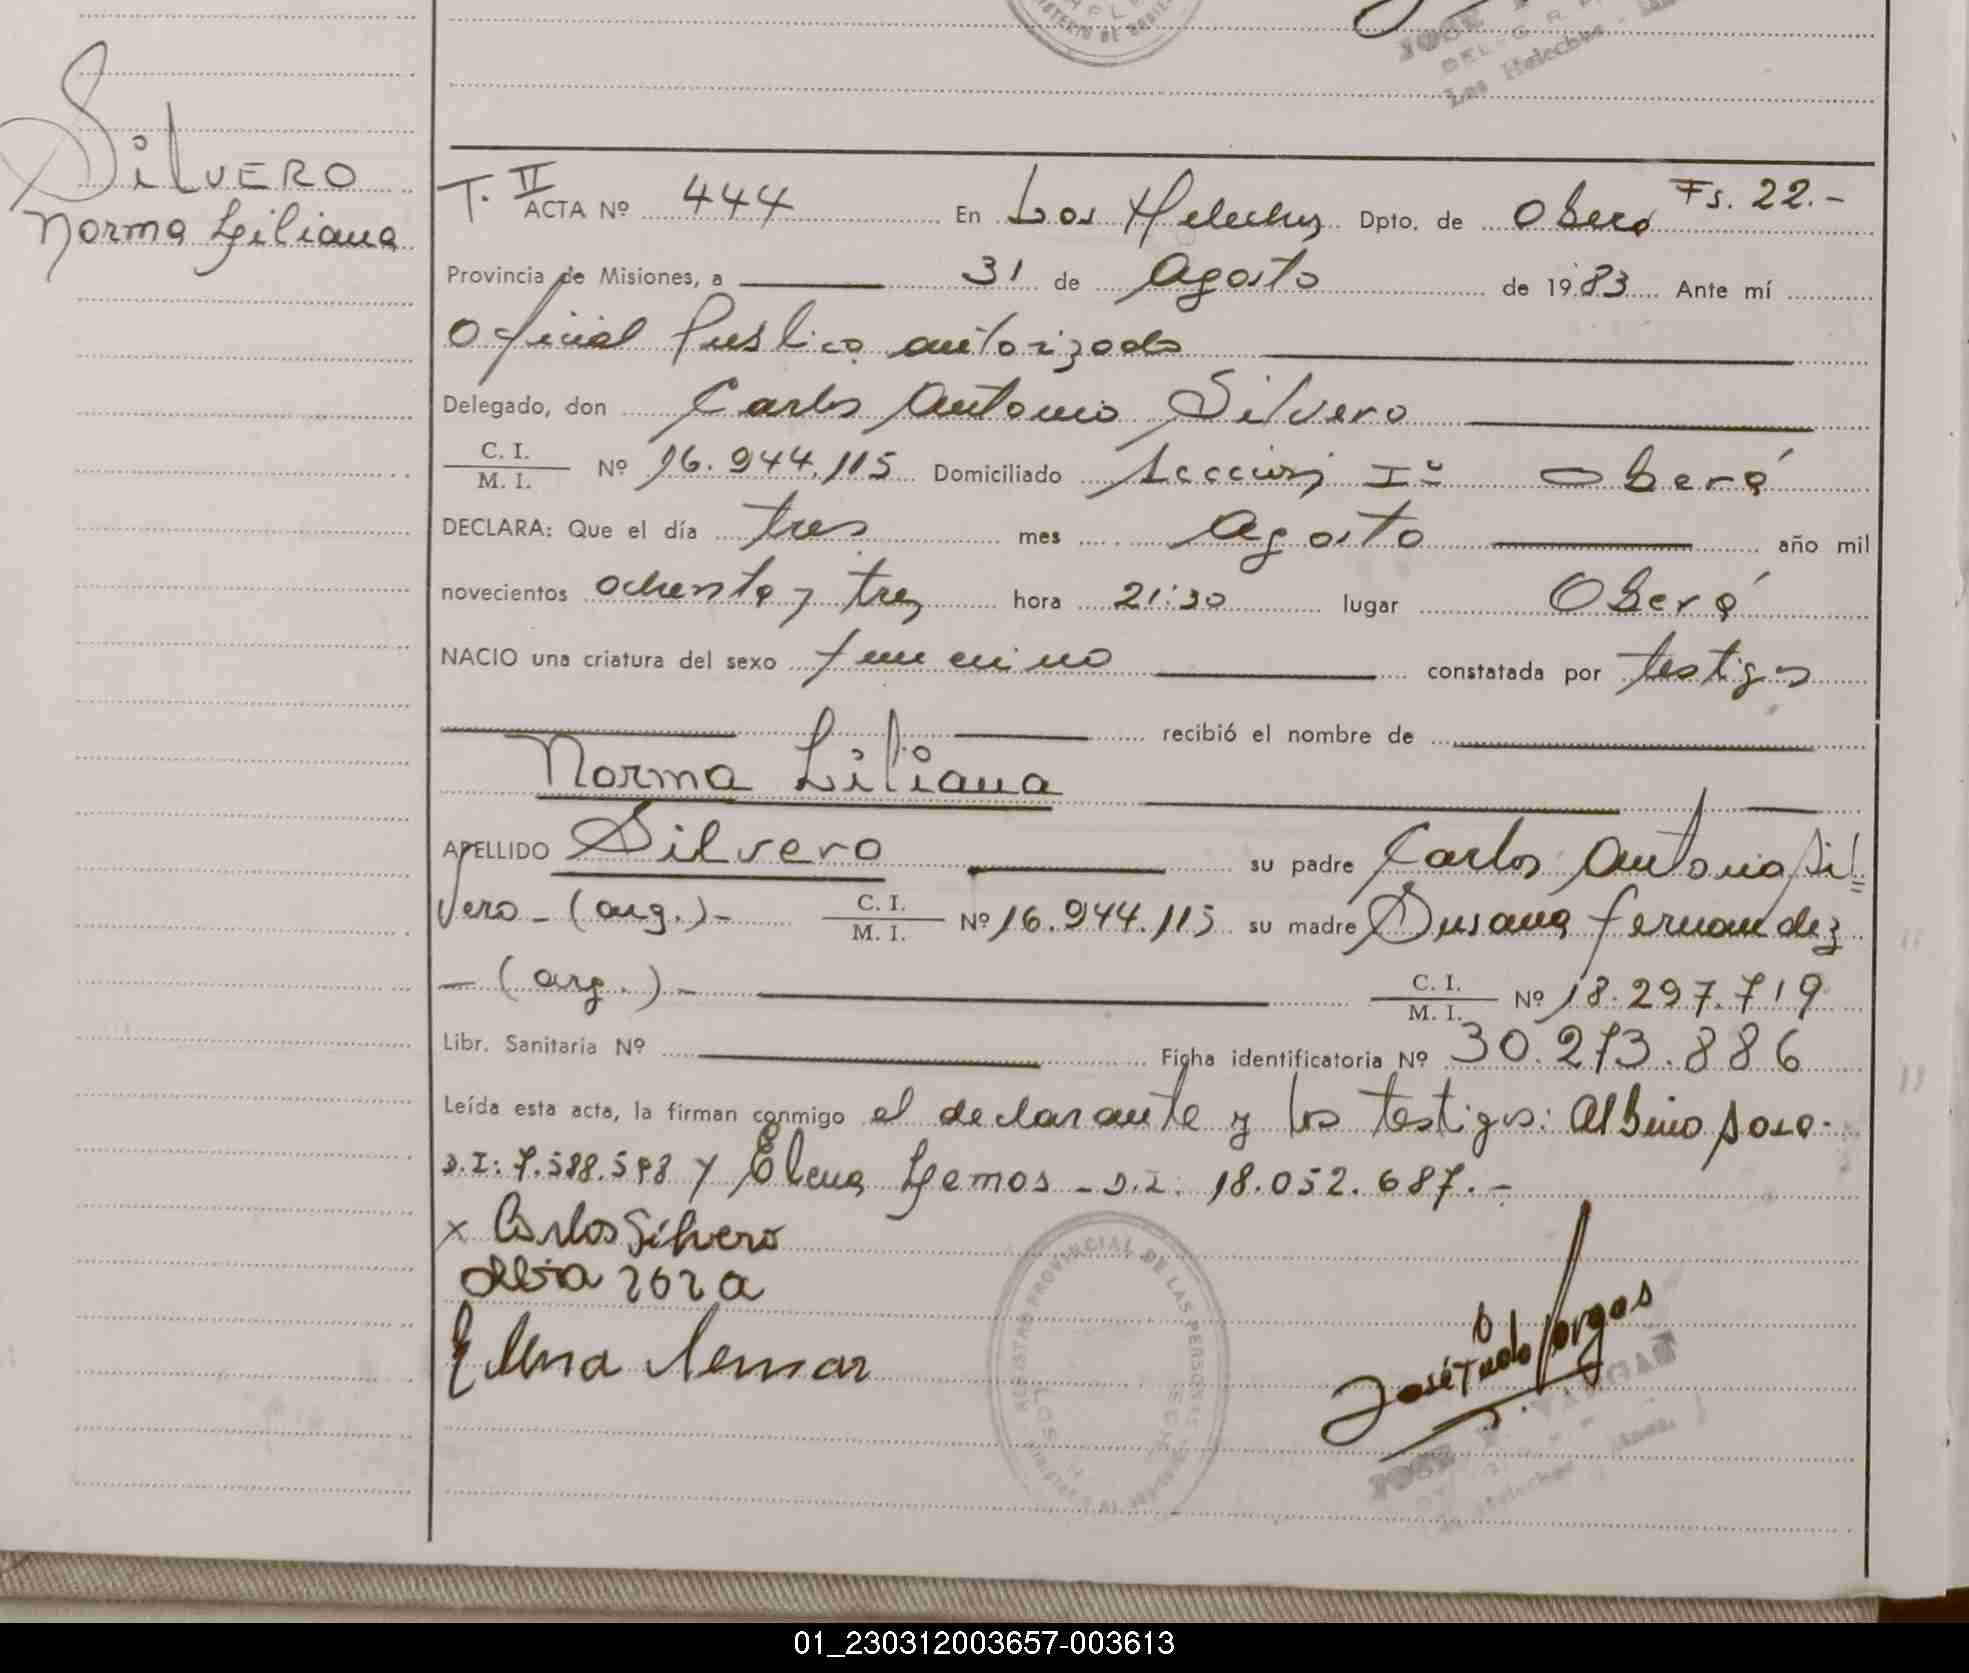 MINISTERIO DE GOBIE
Los Helechos
SILVERO
Norma Liliana
T. II ACTA Nº 444 En Los Helechos Dpto. de Oberá Fs. 22.-
Provincia de Misiones, a 31 de Agosto de 1983 Ante mí
Oficial Publico autorizado
Delegado, don Carlos Antonio Silvero
C. I. / M. I. Nº 16.944.115 Domiciliado Seccion Iº Oberá
DECLARA: Que el día tres mes Agosto año mil
novecientos ochenta y tres hora 21:30 lugar Oberá
NACIO una criatura del sexo femenino constatada por testigos
recibió el nombre de
Norma Liliana
APELLIDO Silvero su padre Carlos Antonio Sil=
vero - (arg.) - C. I. / M. I. Nº 16.944.115 su madre Susana Fernandez
- (arg.) - C. I. / M. I. Nº 18.297.719
Libr. Sanitaria Nº Ficha identificatoria Nº 30.273.886
Leída esta acta, la firman conmigo el declarante y los testigos: Albino Sosa.
D.I: 7.588.598 y Elena Lemos - D.I. 18.052.687.-
x Carlos Silvero
Elena Lemos
REGISTRO PROVINCIAL DE LAS PERSONAS
José Tudo Vargas
JOSE VARGAS
Helechos
01_230312003657-003613